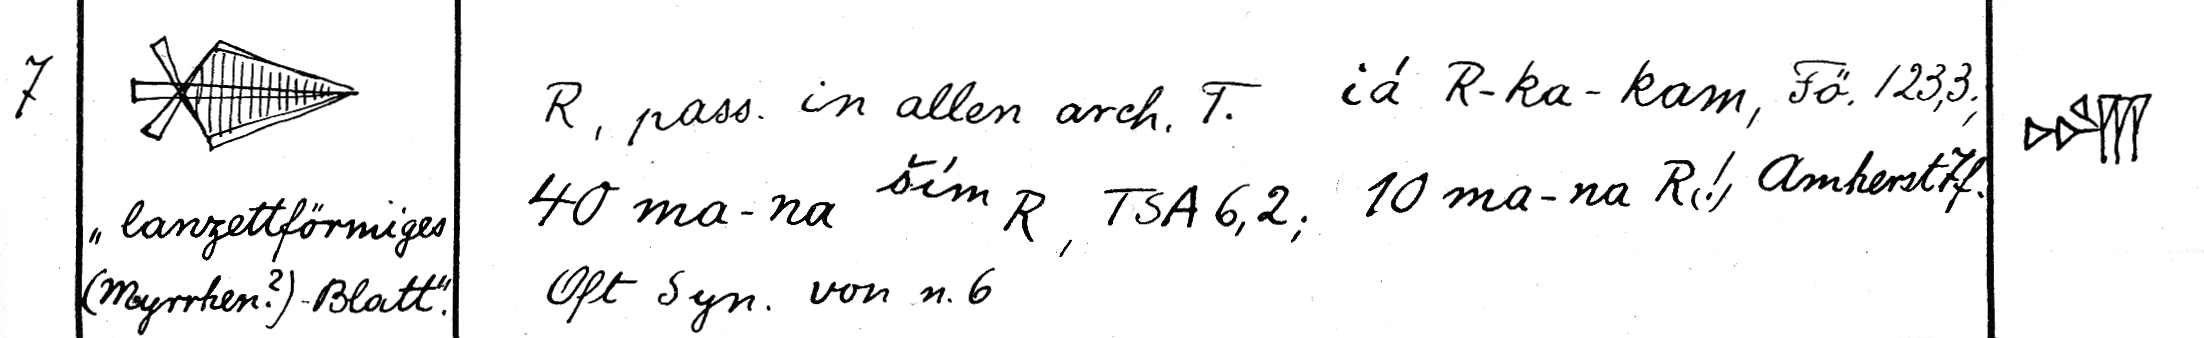 7
„lanzettförmiges
(Myrrhen?)-Blatt".
R, pass. in allen arch. T. iá R-ka-kam, Fö. 123,3;
40 ma-na šim R, TSA 6,2; 10 ma-na R(!), Amherst 7f.
Oft Syn. von n. 6